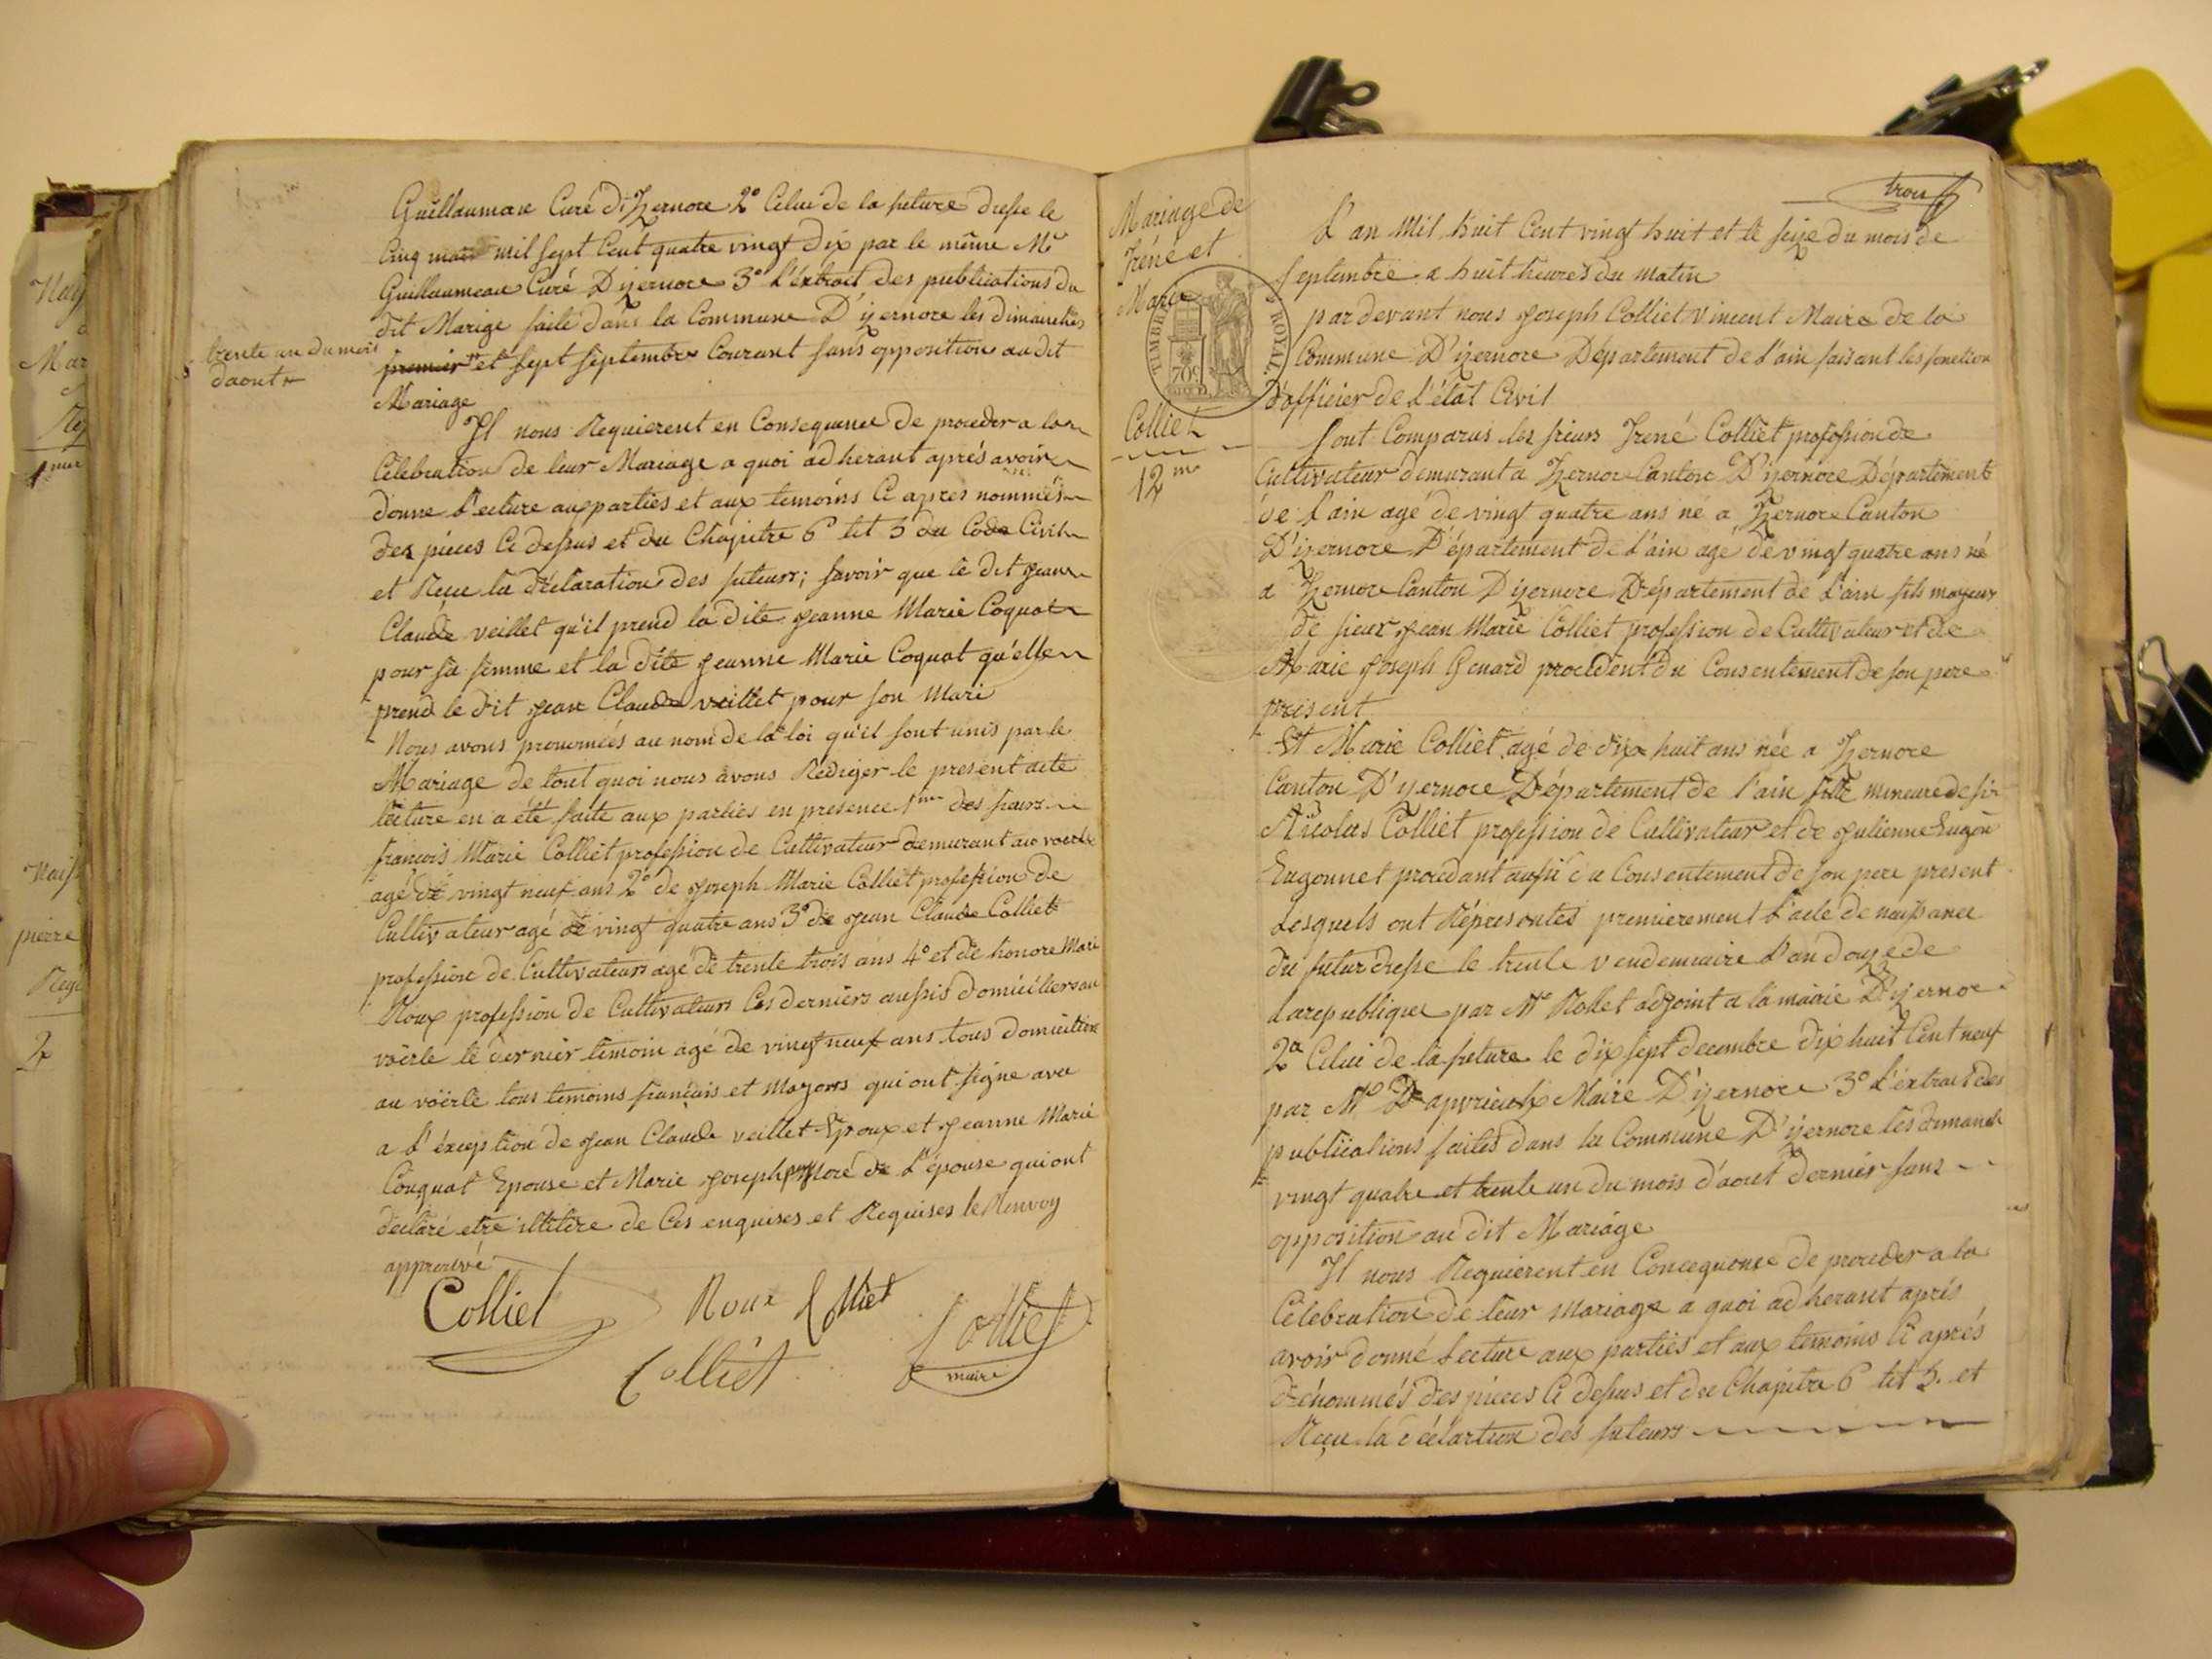 Guillaumau Curé d'Izernore 2° Celui de la future dresse le
Cinq mars mil sept Cent quatre vingt dix par le même Mr
Guillaumeau Curé D'yzernore 3° L'éxtrait des publications du
dit Marige faite dans la Commune D'yzernore les dimanches
trente un du mois
daout
premier et sept septembre Courant sans opposition au dit
Mariage
Il nous Requierent en Consequence de proceder a la
Célebration de leur Mariage a quoi adherant aprés avoir
donne Lecture au parties et aux temoins Ci apres nommés
des pieces Ci dessus et du Chapitre 6 tit 5 du Code Civil
et Recu la déclaration des futeurs; savoir que le dit Jean
Claude veillet qu'il prend la dite Jeanne Marie Coquat
pour sa femme et la dite Jeanne Marie Coquat qu'elle
prend le dit Jean Claude veillet pour son Mari
Nous avons prononcés au nom de la loi qu'il sont unis par le
Mariage de tout quoi nous avons Rediger le present acte
lecture en a été faite aux parties en presence 1mer des sieurs
francois Marie Colliet profession de Cultivateur demurant au voerle
agé de vingt neuf ans 2° de Joseph Marie Colliet profession de
Cultivateur agé de vingt quatre ans 3° de Jean Claude Colliet
profession de Cultivateurs agé de trente trois ans 4° et de honore Marie
Roux profession de Cultivateurs Ces derniers aussis domiciliers au
voërle le dernier temoin agé de vingt neuf ans tous domicilier
au voërle tous temoins francais et Mayors qui ont signe avec
a L'éxception de Jean Claude veillet Epoux et Jeanne Marie
Couquat Epouse et Marie Joseph More de L'épouse qui ont
declaré etre illitere de Ces enquises et Requises le Renvoy
approuvé
Colliet Roux Colliet Colliet
Colliet maire
trois
Mariage de
Iréné et
Marie
Colliet
12me
TIMBRE ROYAL
70c
L'an Mil huit Cent vingt huit et le seize du mois de
septembre a huit heures du matin
par devant nous Joseph Colliet Vincent Maire de la
Commune D'yzernore Département de L'ain faisant les fonction
d'officier de L'état Civil
sont Comparus les sieurs Irené Colliet profession de
Cultivateur demurant a Izernore Canton D'yzernore Département
de L'ain agé de vingt quatre ans né a Izernore Canton
D'izernore Département de L'ain agé de vingt quatre ans né
a Izernore Canton D'yzernore Département de L'ain fils mayeur
de sieur Jean Marie Colliet profession de Cultivateur et de
Marie Joseph Genard procedent du Consentement de son pere
present
Et Marie Colliet agé de dix huit ans née a Izernore
Canton D'yzernore Département de l'ain fille mineure de sir
Nicolas Colliet profession de Cultivateur et de Julienne Eugon
Eugonnet procedant aussi du Consentement de son pere present
Lesquels ont Répresentés premierement L'acte de naissance
du futur dresse le trente vendemiaire L'an douze de
la republique par Mr Rollet adjoint a la mairie D'yzernore
2° Celui de la future le dix sept decembre dix huit Cent neuf
par Mr Maire D'yzernore 3° L'éxtrait des
publications faites dans la Commune D'yzernore les dimanch
vingt quatre et trente un du mois d'aout dernier sans
opposition au dit Mariage
Il nous Requierent en Concequence de proceder a la
Célebration de leur Mariage a quoi adherant aprés
avoir donné Lecture aux parties et aux temoins Ci aprés
dénommés des pieces Ci dessus et du Chapitre 6 tit 5. et
Reçu la déclartion des futeurs